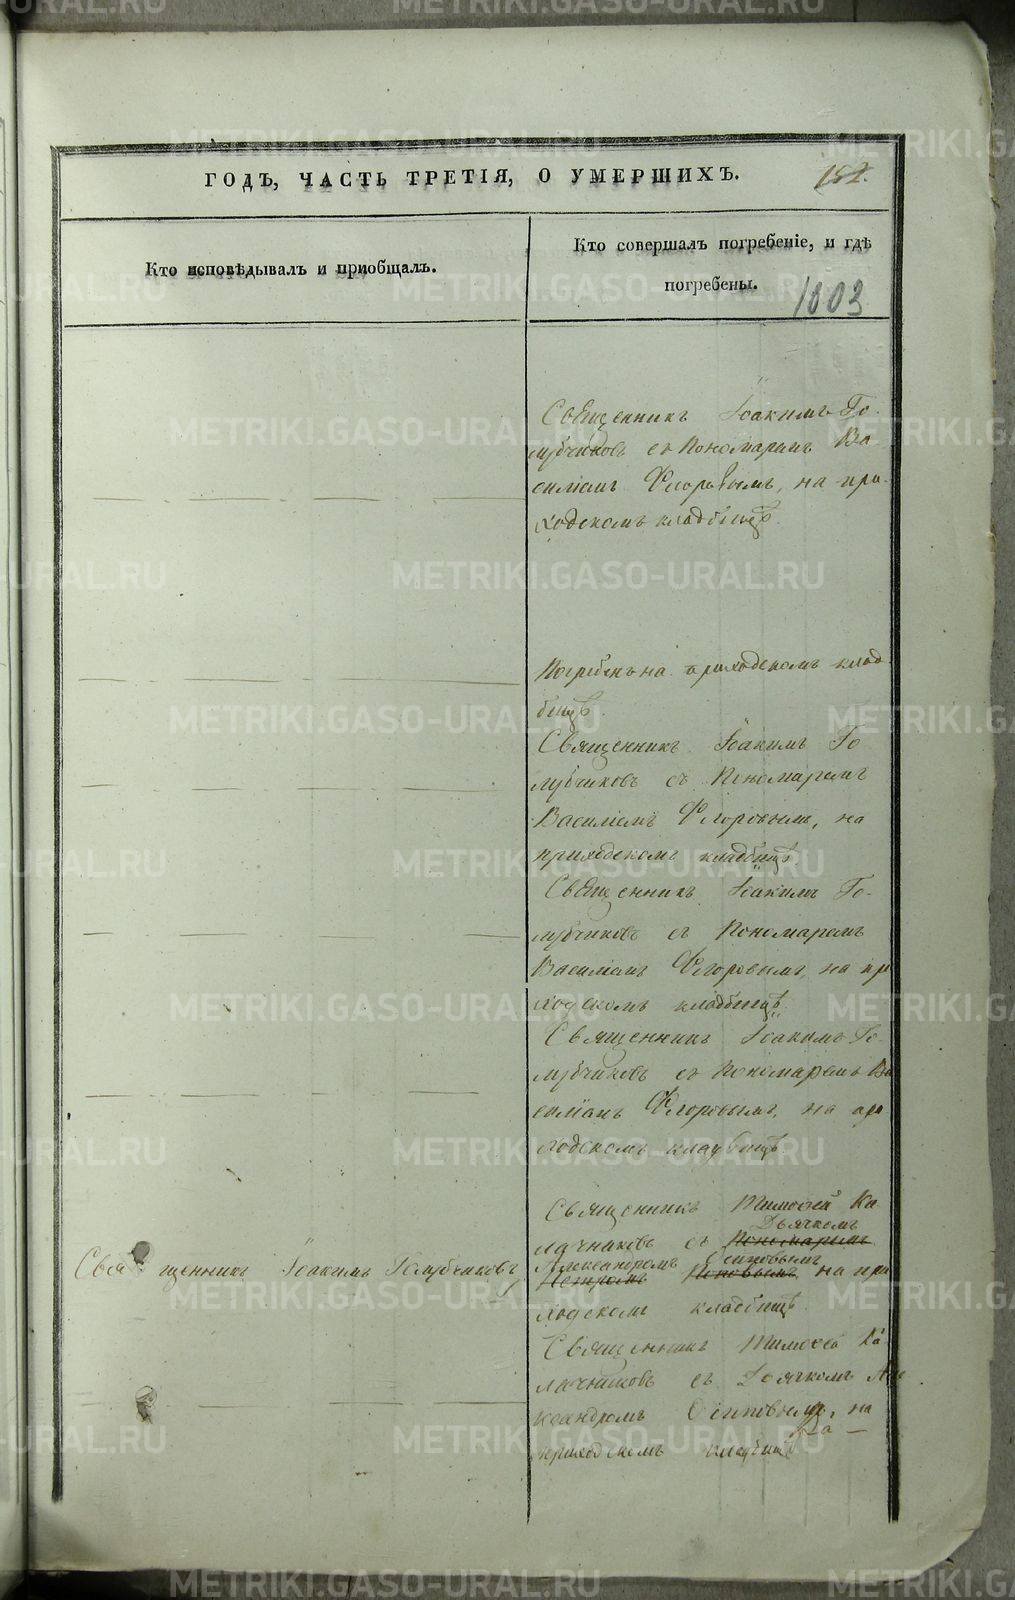 ГОДЪ, ЧАСТЬ ТРЕТІЯ, О УМЕРШИХЪ.
152.
Кто исповѣдывалъ и приобщалъ.
Кто совершалъ погребеніе, и гдѣ
погребены.
1003
Священникъ Іоакимъ Го-
лубчиковъ съ Пономаремъ Ва
силіемъ Флоровымъ, на при-
ходскомъ кладбищѣ.
Погребенъ на приходскомъ клад
бищѣ.
Священникъ Іоакимъ Го
лубчиковъ съ Пономаремъ
Василіемъ Флоровымъ, на
приходскомъ кладбищѣ
Священникъ Іоакимъ Го-
лубчиковъ съ Пономаремъ
Василіемъ Флоровымъ, на пр
ходскомъ кладбищѣ.
Священникъ Іоакимъ Го-
лубчиковъ съ Пономаремъ Ва
силіемъ Флоровымъ, на при
ходскомъ кладбищѣ
Священникъ Тимофей Ка
Дьячкомъ
лачниковъ съ Пономаремъ
Александромъ Осиповымъ
Петромъ Поповымъ на при
ходскомъ кладбищѣ
Священникъ Іоакимъ Голубчиковъ
Священникъ Тимофей Ка-
лачниковъ съ Дьячкомъ Але
ксандромъ Осиповымъ, на
приходскомъ кладбищѣ
Ва —
METRIKI.GASO-URAL.RU